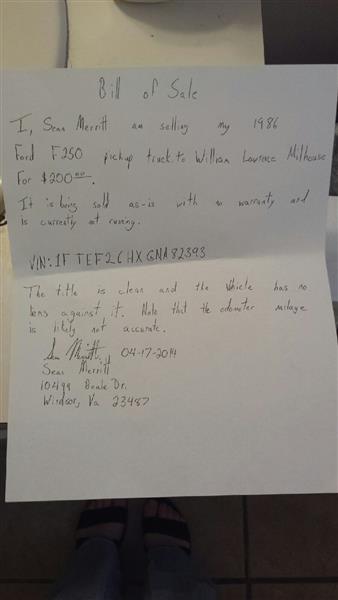 Bill of Sale
I, Sean Merritt am selling my 1986
Ford F250 pickup truck to William Lawrence Milhouse
For $200.00.
It is being sold as-is with no warranty and
is currently not running.
VIN: 1FTEF26HXGNA82393
The title is clean and the vehicle has no
liens against it. Note that the odometer milage
is likely not accurate.
Sean Merritt 04-17-2014
Sean Merritt
10499 Beale Dr.
Windsor, Va 23487